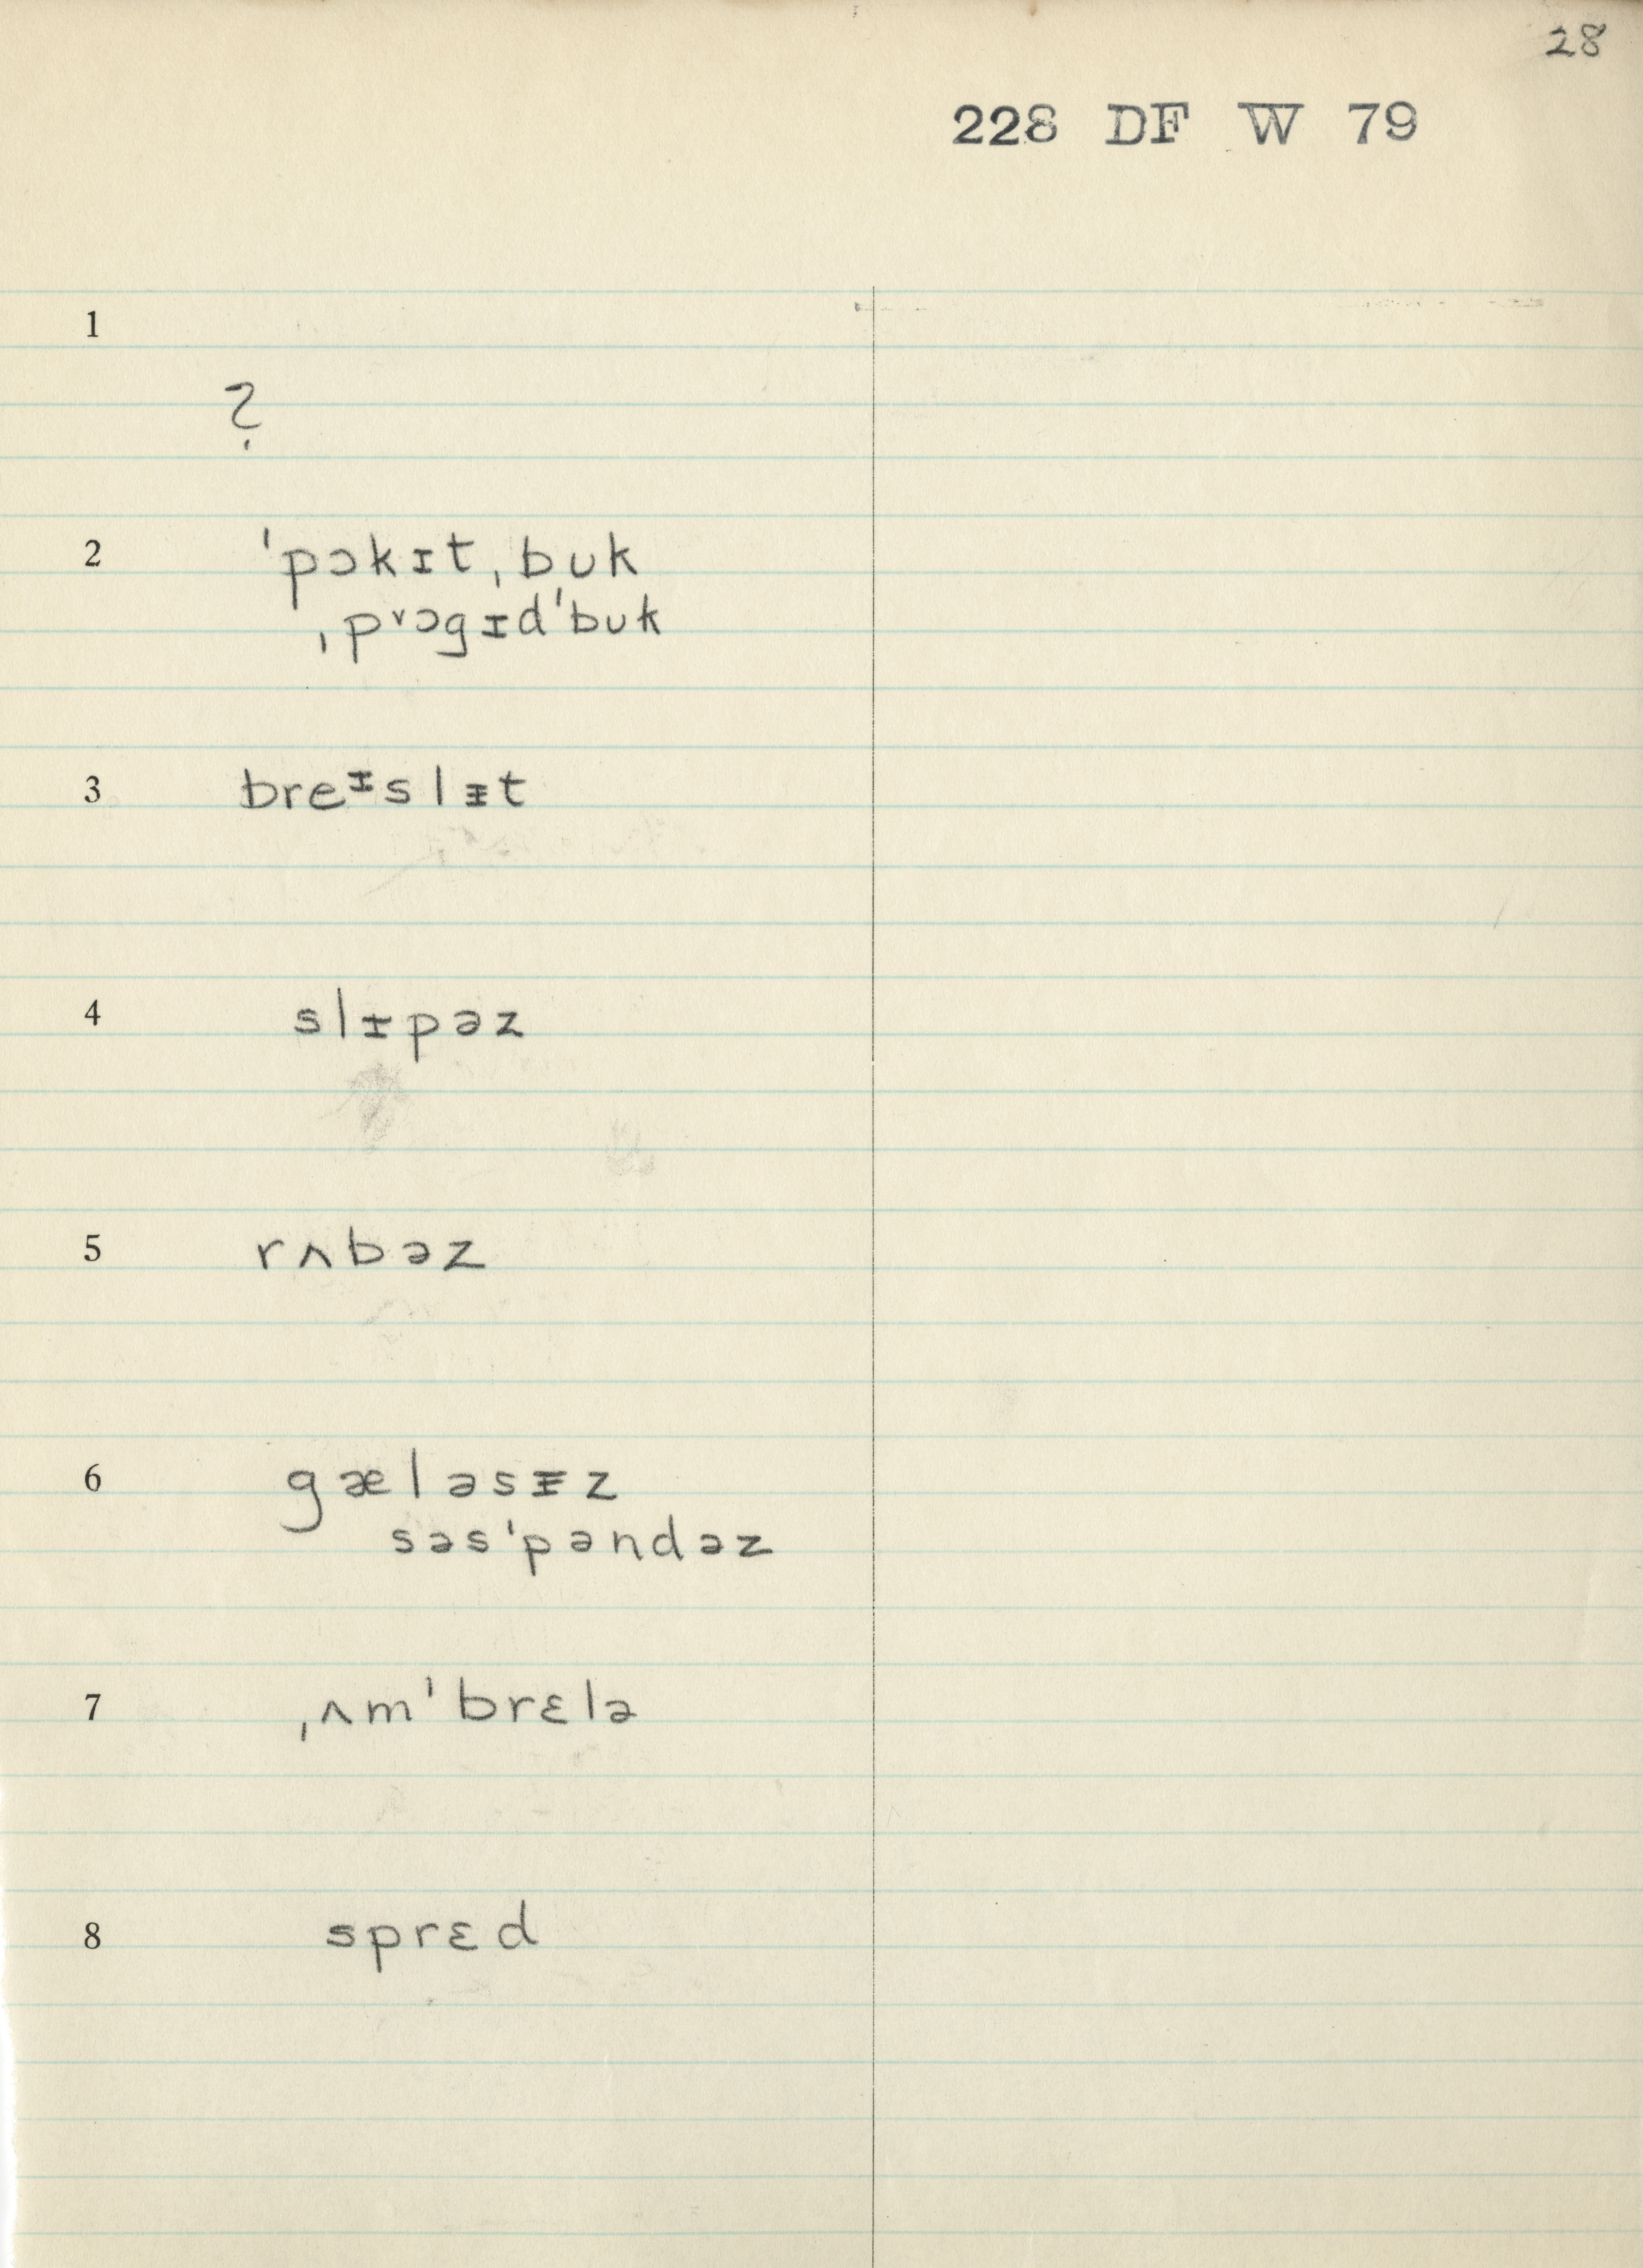 28
228 DF W 79
1
?
2 ˈpɔkɪt ˌbʊk
ˌpᵛɔgɪdˈbʊk
3 breᶦslᵻt
4 slɪpəz
5 rʌbəz
6 gæləsᵻz
səsˈpəndəz
7 ˌʌmˈbrɛlə
8 sprɛd